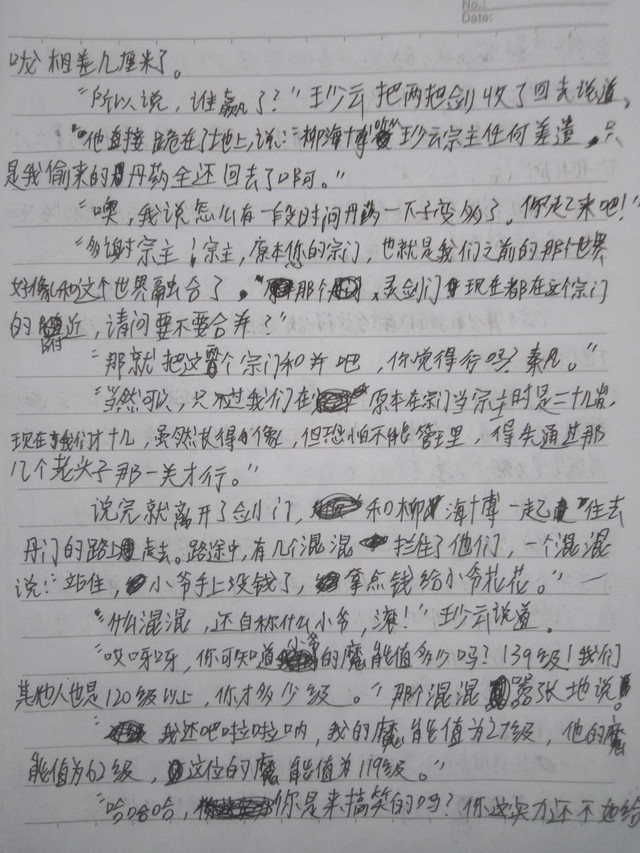 No.:
Date:
咙相差几厘米了。
“所以说，谁赢了？”王妙云把两把剑收了回去说道。
“他直接跪在了地上，说：“柳海博 王妙云宗主任何差遣，只
是我偷来的丹药全还回去了啊。”
“噢，我说怎么有一段时间丹药一下子变多了。你起来吧！”
“多谢宗主！宗主，原本您的宗门，也就是我们之前的那个世界
好像和这个世界融合了，那个 灵剑门现在都在这个宗门
的附近，请问要不要合并？”
“那就把这个宗门和并吧，你觉得行吗？秦凡。”
“当然可以，只不过我们在原本在宗门当宗主时是二十九岁，
现在我们才十几，虽然长得像，但恐怕不能管理，得先通过那
几个老头子那一关才行。”
说完就离开了剑门，和柳海博一起往去
丹门的路上走去。路途中，有几个混混拦住了他们，一个混混
说：“站住，小爷手上没钱了，拿点钱给小爷花花。”
“什么混混，还自称什么小爷，滚！”王妙云说道。
“哎呀呀，你可知道小爷的魔能值多少吗？139级！我们
其他人也是120级以上，你才多少级。”那个混混嚣张地说。
“我还吧啦啦呐，我的魔能值为27级，他的魔
能值为62级，这位的魔能值为119级。”
“哈哈哈，你是来搞笑的吗？你这实力还不够给